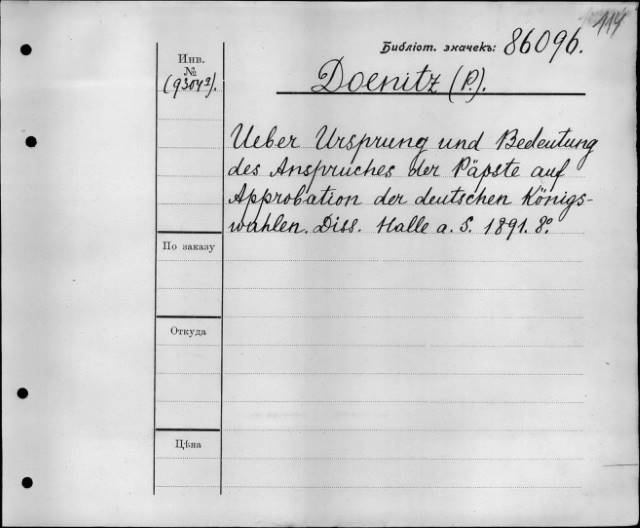 114
Библіот. значекъ: 86096.
Инв.
№
(9304²).
Doenitz (P.).
Ueber Ursprung und Bedeutung
des Anspruches der Päpste auf
Approbation der deutschen Königs-
wahlen. Diss. Halle a. S. 1891. 8.°
По заказу
Откуда
Цѣна